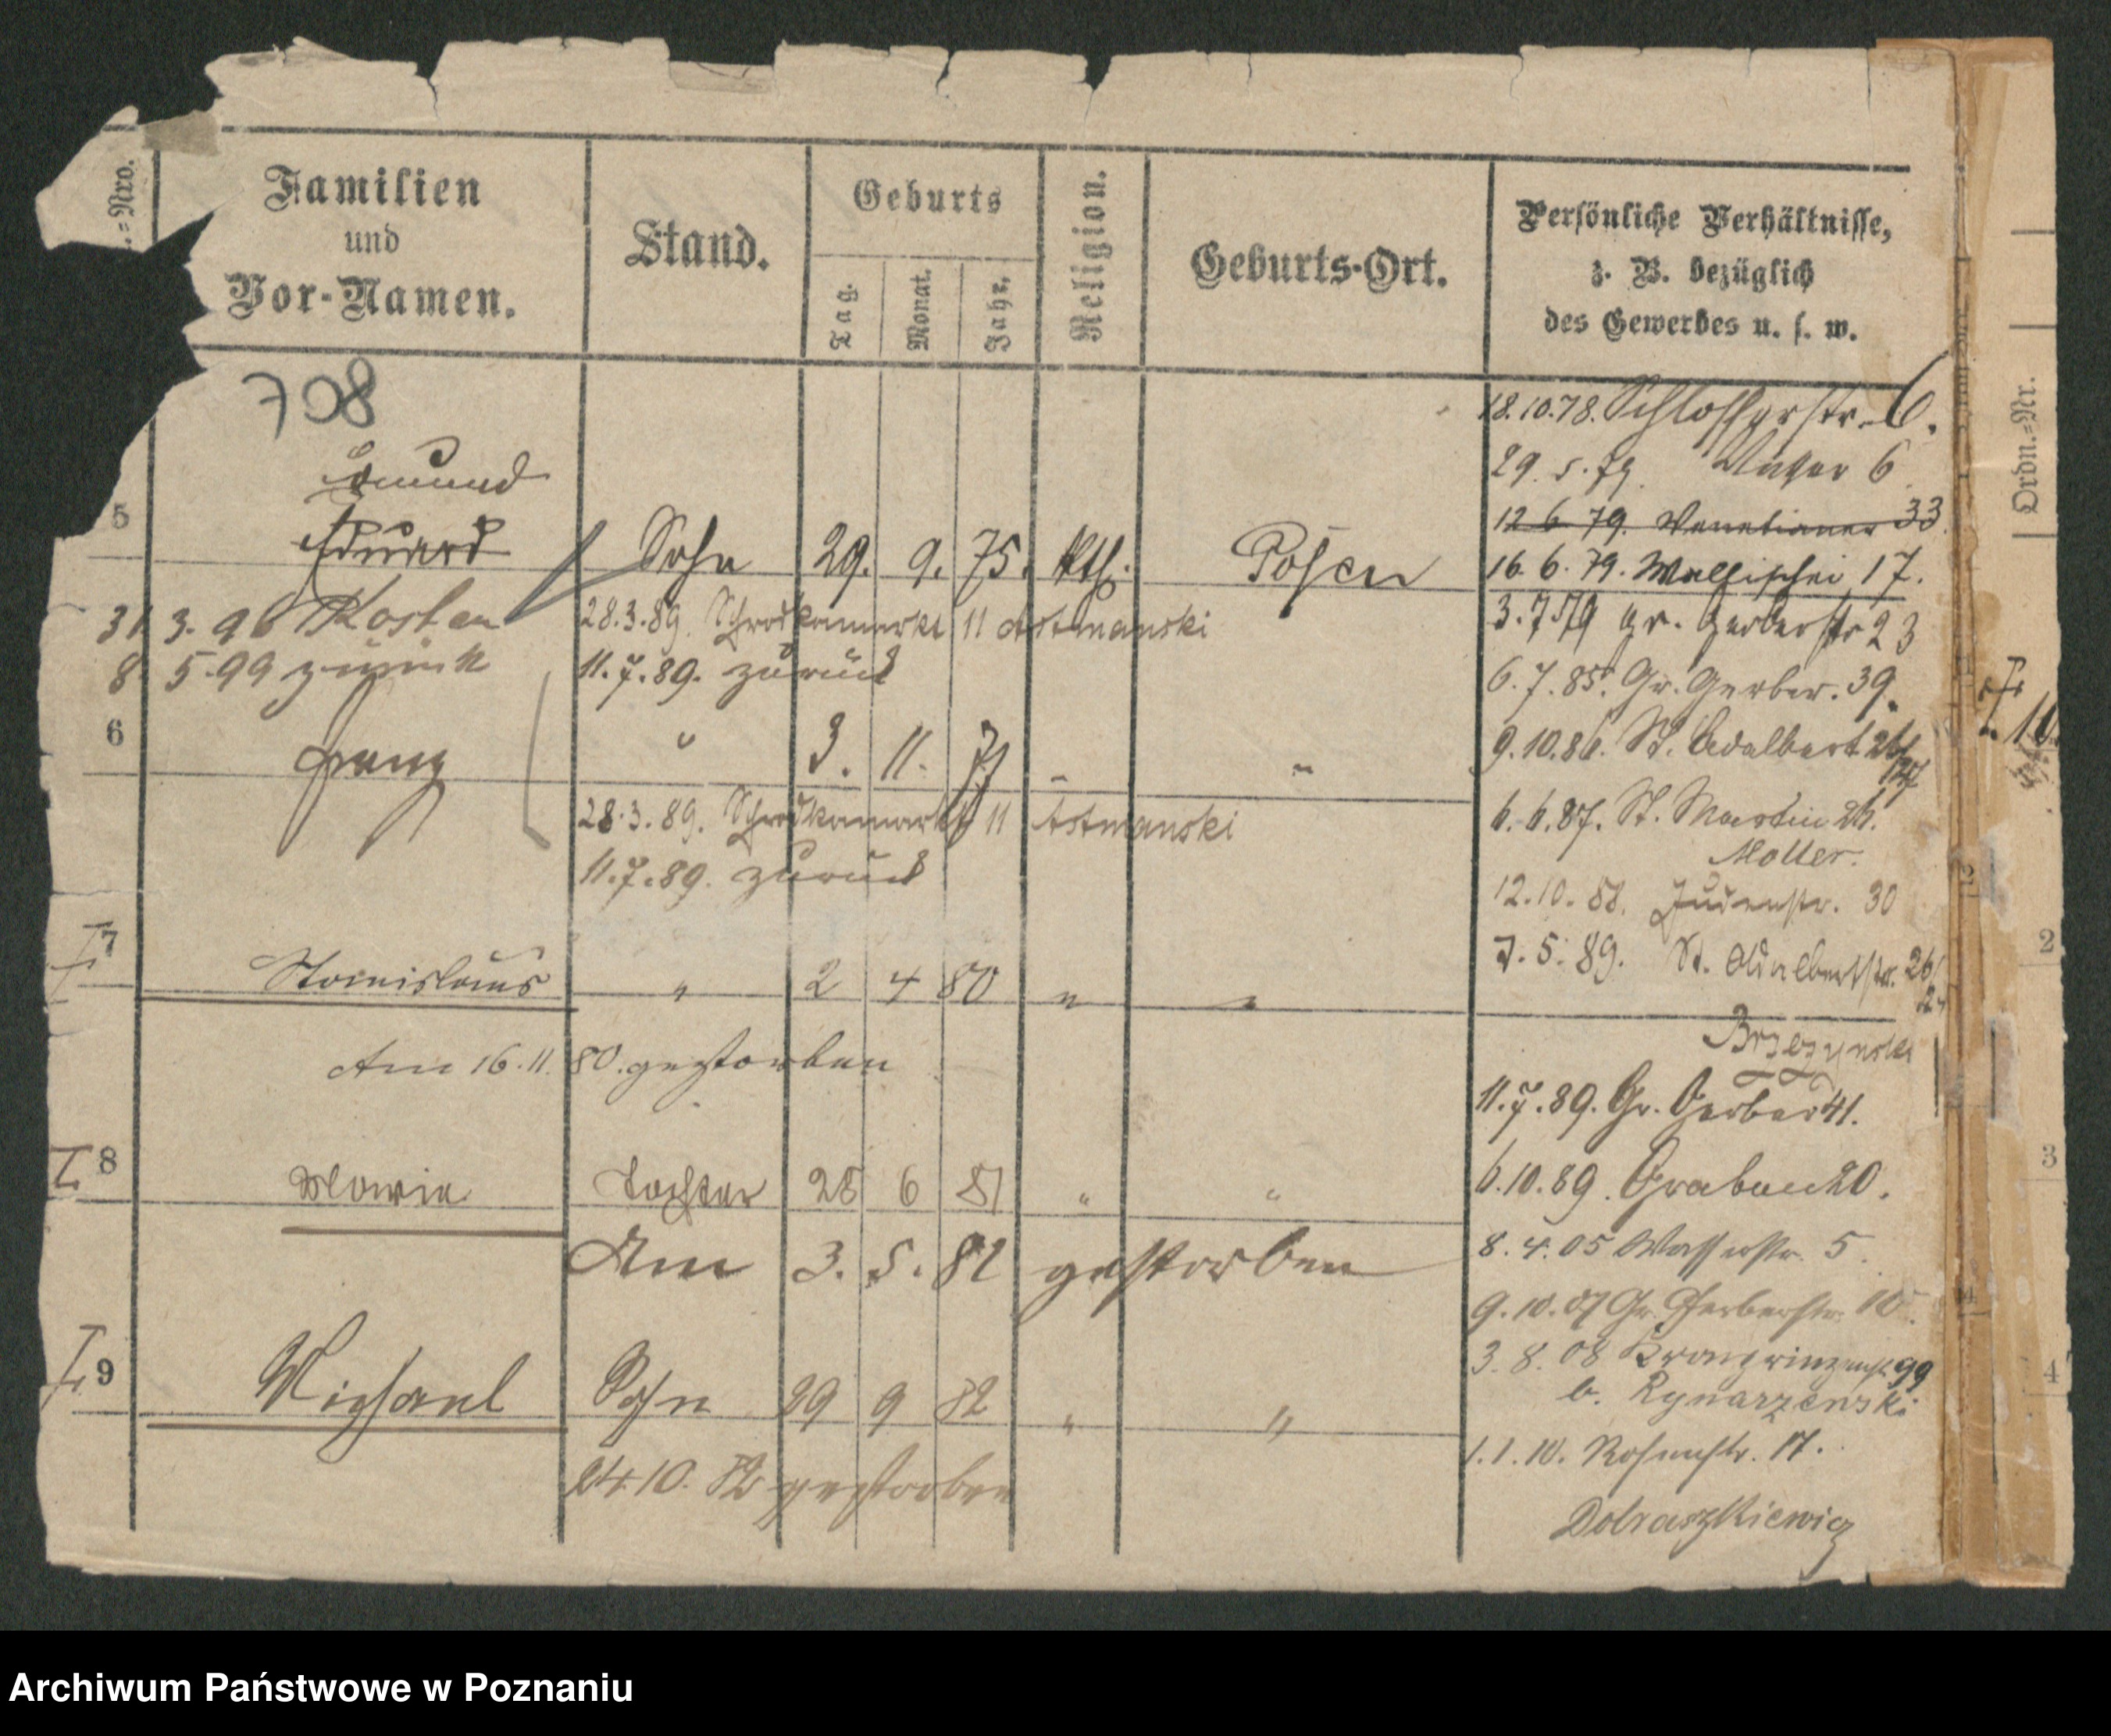 .=Nro.
Familien
und
Vor-Namen.
Stand.
Geburts
Tag.
Monat.
Jahr.
Religion.
Geburts-Ort.
Persönliche Verhältnisse,
z. B. bezüglich
des Gewerbes u. s. w.
708
5
Edmund
Eduard
Sohn 29. 9. 75. kth. Posen
31 3. 96 Kosten
8 5. 99 zurück
28.3.89. Schrodkamarkt 11 Astmanski
11.7.89. zurück
6
Franz
" 3. 11. 77 " "
28.3.89. Schrodkamarkt 11 Astmanski
11.7.89. zurück
7
Stanislaus " 2 4 80 " "
Am 16.11.80. gestorben
8
Maria Tochter 28 6 81 " "
Am 3. 5. 82 gestorben
9
Michael Sohn 29 9 82 " "
24.10.82 gestorben
18.10.78. Schlosserstr. 6.
29. 5. 79. 6
12 6 79. Venetianer 33
16. 6. 79. Wallischei 17.
3. 7 79 gr. Gerberstr 23
6. 7. 85. Gr. Gerber. 39.
9.10.86. St. Adalbert 26/27
6. 6. 87. St. Martin 26.
Moller.
12.10. 88. Judenstr. 30
7. 5. 89. St. Adalbertstr. 26/
Brzezynski
11.7.89. Gr. Gerber 41.
6.10.89. Graben 20.
8. 4. 05 Wasserstr. 5.
9. 10. 07 Gr. Gerberstr. 10.
3. 8. 08 Kronprinzenst. 99
b. Rynarzewski
1. 1. 10. Rosenstr. 17.
Dobraszkiewicz
Ordn.=Nr.
2
3
4
Archiwum Państwowe w Poznaniu